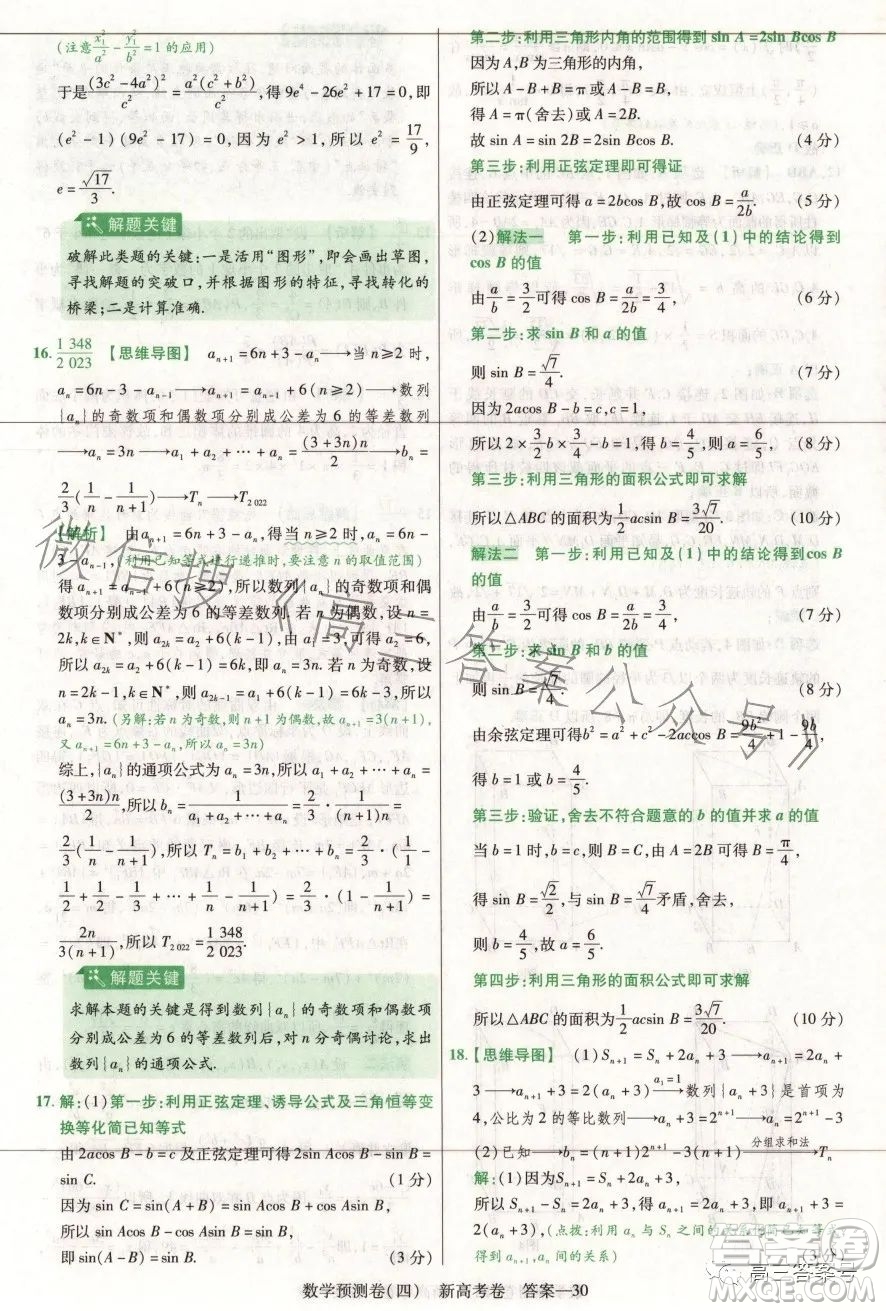 (注意x₁²/a²-y₁²/b²=1 的应用)
于是(3c²-4a²)²/c²=a²(c²+b²)/c²,得9e⁴-26e²+17=0,即
(e²-1)(9e²-17)=0,因为 e²>1,所以 e²=17/9,
e=√17/3.
解题关键
破解此类题的关键:一是活用“图形”,即会画出草图,
寻找解题的突破口,并根据图形的特征,寻找转化的
桥梁;二是计算准确.
16. 1 348/2 023 【思维导图】 aₙ₊₁=6n+3-aₙ⟶当 n≥2 时,
aₙ=6n-3-aₙ₋₁⟶aₙ₊₁=aₙ₋₁+6(n≥2)⟶数列
{aₙ}的奇数项和偶数项分别成公差为 6 的等差数列
⟶aₙ=3n⟶a₁+a₂+⋯+aₙ=(3+3n)n/2⟶bₙ=
2/3(1/n-1/(n+1))⟶Tₙ⟶T₂₀₂₂
[解析] 由aₙ₊₁=6n+3-aₙ,得当 n≥2 时,aₙ=6n-3-
aₙ₋₁,(利用已知等式进行递推时,要注意 n 的取值范围)
得 aₙ₊₁=aₙ₋₁+6(n≥2),所以数列{aₙ}的奇数项和偶
数项分别成公差为 6 的等差数列.若 n 为偶数,设 n=
2k,k∈N*,则 a₂ₖ=a₂+6(k-1),又可得 a₂=6,
所以 a₂ₖ=6+6(k-1)=6k,所以 aₙ=3n.若 n 为奇数,设
n=2k-1,k∈N*,则 a₂ₖ₋₁=a₁+6(k-1)=6k-3,所以
aₙ=3n.(另解:若 n 为奇数,则 n+1 为偶数,故 aₙ₊₁=3(n+1),
又 aₙ₊₁=6n+3-aₙ,所以 aₙ=3n)
综上,{aₙ}的通项公式为 aₙ=3n,所以 a₁+a₂+⋯+aₙ=
(3+3n)n/2,所以 bₙ=n/(a₁+a₂+⋯+aₙ)=2/3·1/((n+1)n)=
2/3(1/n-1/(n+1)),所以 Tₙ=b₁+b₂+⋯+bₙ=2/3(1-
1/2+1/2-1/3+⋯+1/n-1/(n+1))=2/3(1-1/(n+1))=
2n/3(n+1),所以 T₂₀₂₂=1 348/2 023.
解题关键
求解本题的关键是得到数列{aₙ}的奇数项和偶数项
分别成公差为 6 的等差数列后,对 n 分奇偶讨论,求出
数列{aₙ}的通项公式.
17. 解:(1)第一步:利用正弦定理、诱导公式及三角恒等变
换等化简已知等式
由 2acos B-b=c 及正弦定理可得 2sin Acos B-sin B=
sin C. (1 分)
因为 sin C=sin(A+B)=sin Acos B+cos Asin B,
所以 sin Acos B-cos Asin B=sin B,
即 sin(A-B)=sin B. (3 分)
第二步:利用三角形内角的范围得到 sin A=2sin Bcos B
因为 A,B 为三角形的内角,
所以 A-B+B=π或 A-B=B,
得 A=π(舍去)或 A=2B.
故 sin A=sin 2B=2sin Bcos B. (4 分)
第三步:利用正弦定理即可得证
由正弦定理可得 a=2bcos B,故 cos B=a/2b. (5 分)
(2)解法一 第一步:利用已知及(1)中的结论得到
cos B 的值
由a/b=3/2可得 cos B=a/2b=3/4. (6 分)
第二步:求 sin B 和 a 的值
则 sin B=√7/4. (7 分)
因为 2acos B-b=c,c=1,
所以 2×3/2b×3/4-b=1,得 b=4/5,故 a=6/5. (8 分)
第三步:利用三角形的面积公式即可求解
所以△ABC 的面积为1/2acsin B=3√7/20. (10 分)
解法二 第一步:利用已知及(1)中的结论得到cos B
的值
由a/b=3/2可得 cos B=a/2b=3/4. (7 分)
第二步:求 sin B 和 b 的值
则 sin B=√7/4. (8 分)
由余弦定理可得 b²=a²+c²-2accos B=9b²/4+1-9b/4,
得 b=1 或 b=4/5.
第三步:验证,舍去不符合题意的 b 的值并求 a 的值
当 b=1 时,b=c,所以 B=C,由 A=2B 可得 B=π/4,
得 sin B=√2/2,与 sin B=√7/4矛盾,舍去.
则 b=4/5,故 a=6/5.
第四步:利用三角形的面积公式即可求解
所以△ABC 的面积为1/2acsin B=3√7/20. (10 分)
18. 【思维导图】 (1)Sₙ₊₁=Sₙ+2aₙ+3⟶aₙ₊₁=2aₙ+
3⟶aₙ₊₁+3=2(aₙ+3)⟶(a₁=1)数列{aₙ+3}是首项为
4,公比为 2 的等比数列⟶aₙ+3=2ⁿ⁺¹⟶aₙ=2ⁿ⁺¹-3
(2)已知⟶bₙ=(n+1)2ⁿ⁺¹-3(n+1)⟶(分组求和法)Tₙ
解:(1)因为Sₙ₊₁=Sₙ+2aₙ+3,
所以 Sₙ₊₁-Sₙ=2aₙ+3,所以 aₙ₊₁=2aₙ+3,即 aₙ₊₁+3=
2(aₙ+3),(点拨:利用 aₙ 与 Sₙ 之间的关系
得到 aₙ₊₁,aₙ 间的关系) (3 分)
数学预测卷(四) 新高考卷 答案—30
微信搜《高三答案公众号》
高三答案号